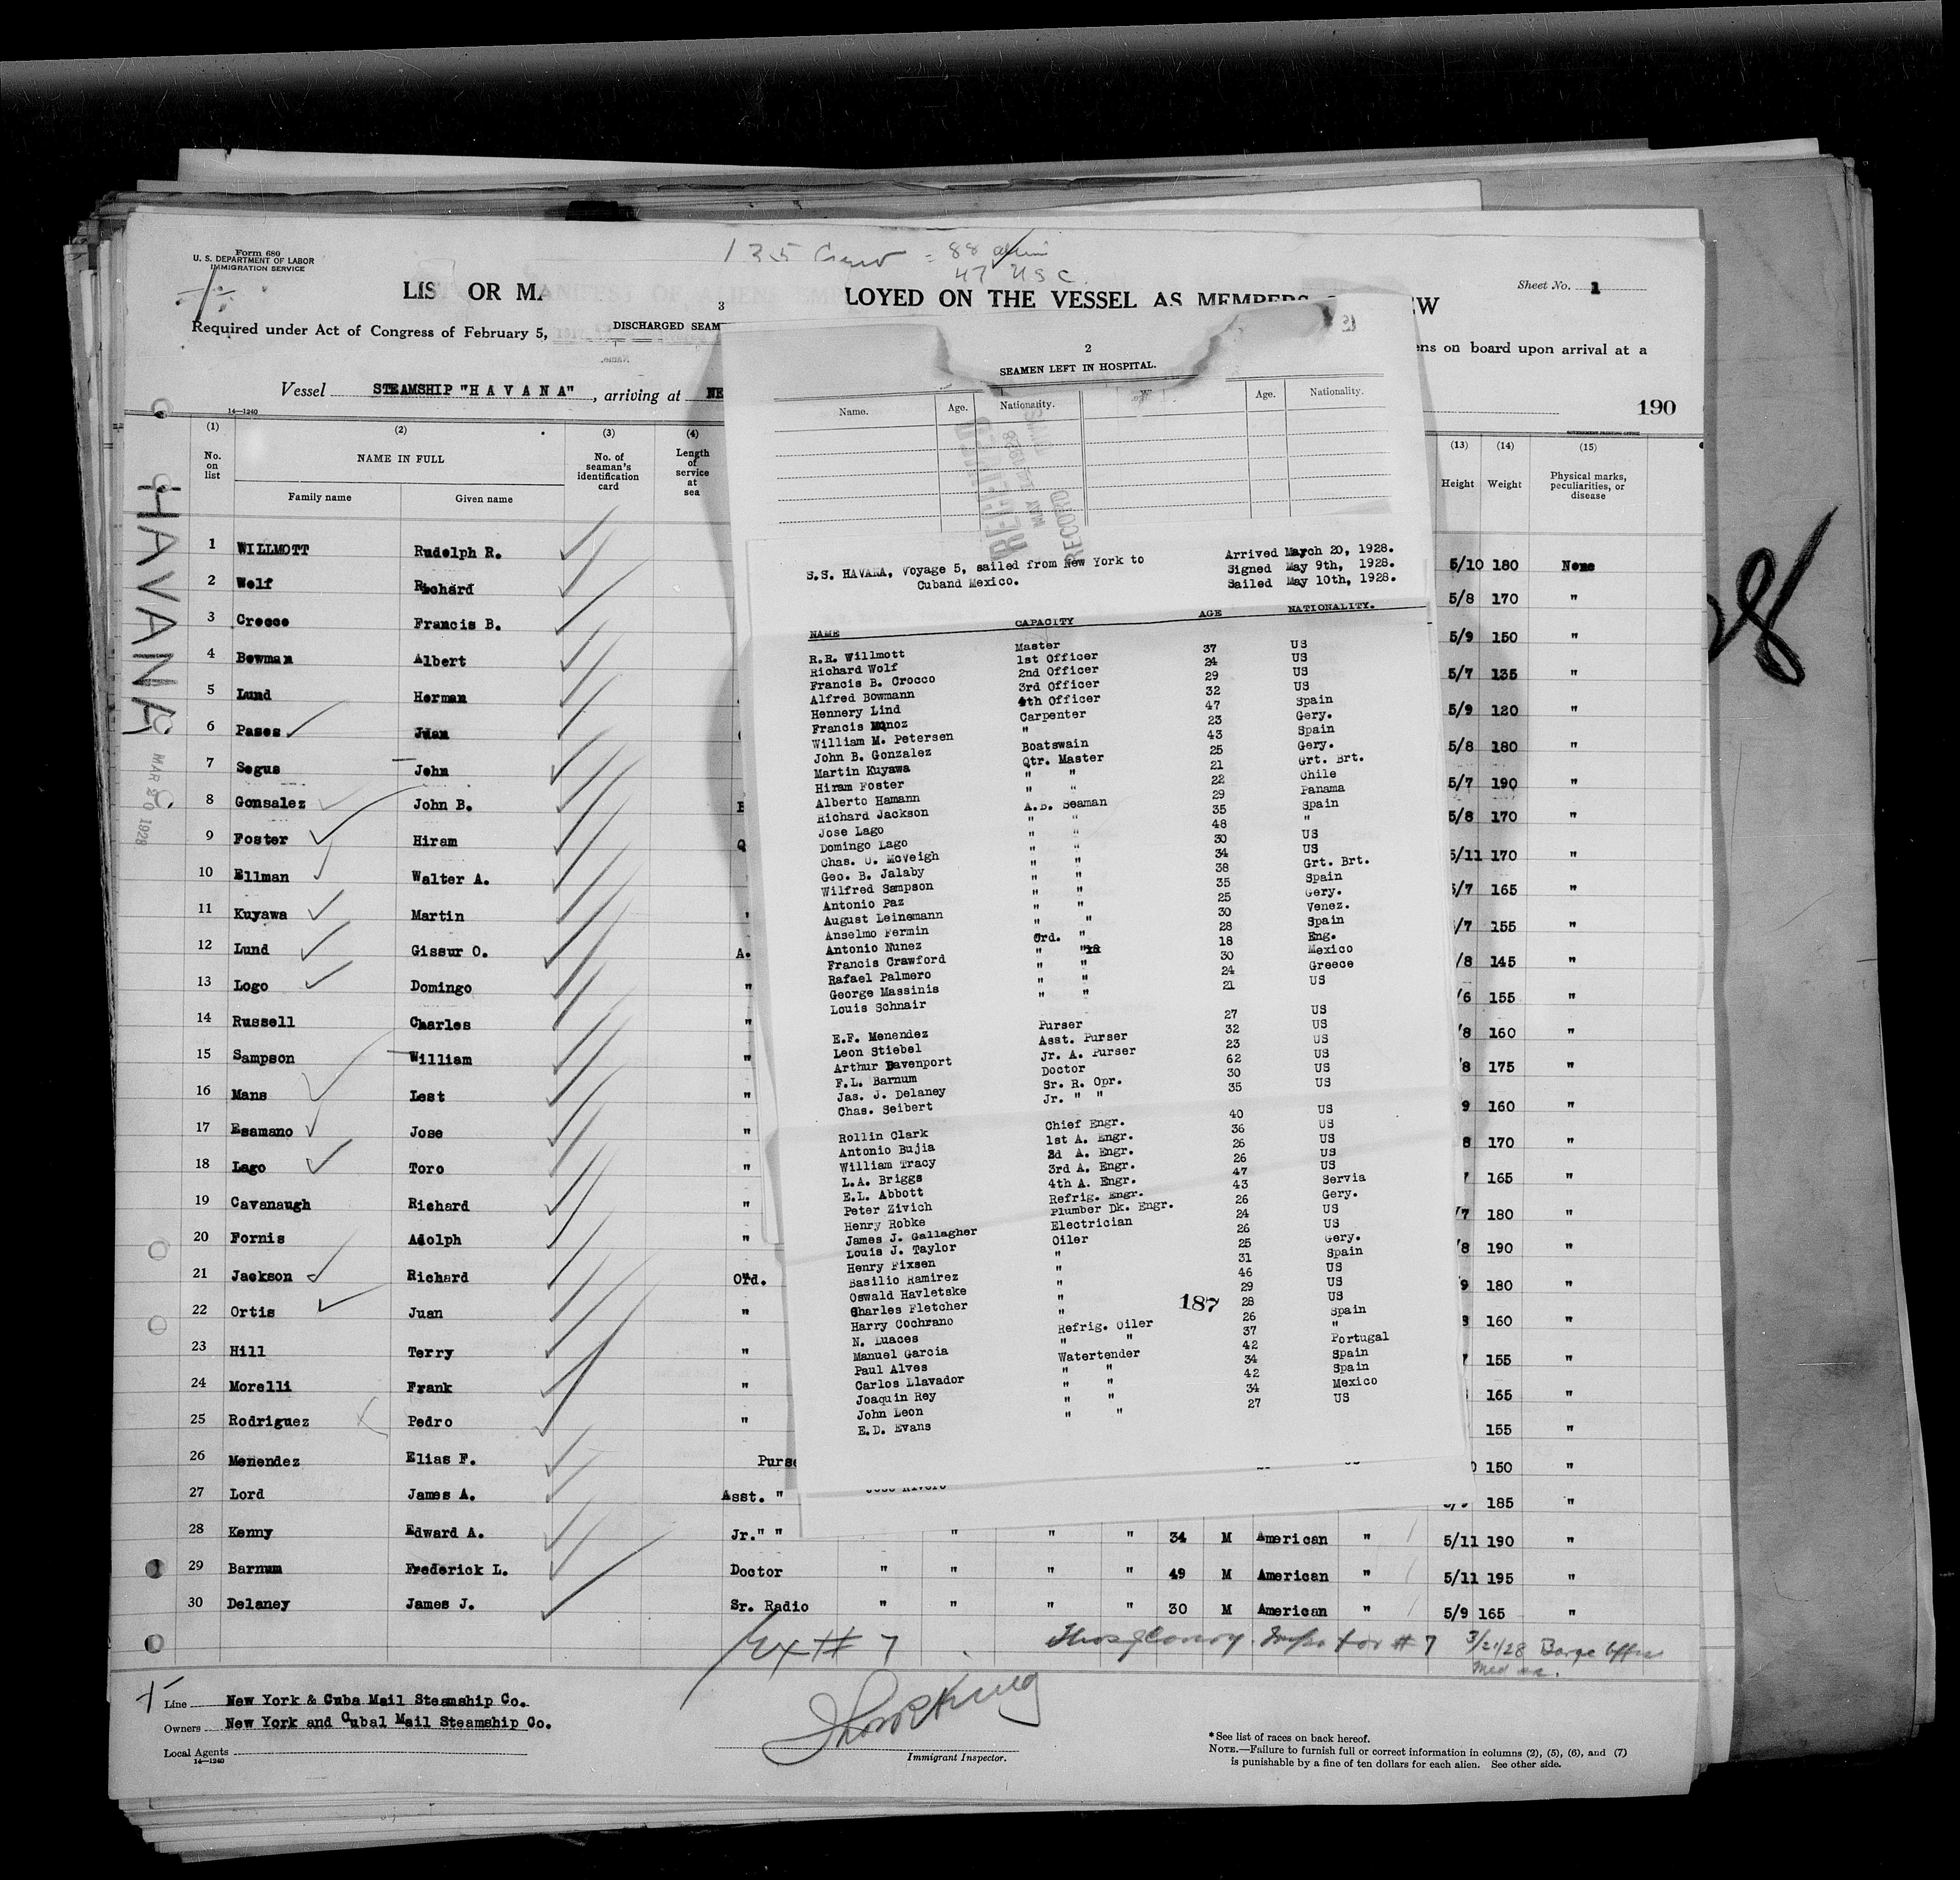 Form 680
U. S. DEPARTMENT OF LABOR
IMMIGRATION SERVICE
135 Crew = 88 alien
47 USC
Sheet No. 1
LIST OR MANIFEST OF ALIENS EMPLOYED ON THE VESSEL AS MEMBERS EW
Required under Act of Congress of February 5,
ens on board upon arrival at a
Vessel STEAMSHIP "H A V A N A", arriving at NE
190
14—1240
GOVERNMENT PRINTING OFFICE
(1) (2) (3) (4) (13) (14) (15)
No. on list
NAME IN FULL
Family name Given name
No. of seaman's identification card
Length of service at sea
Height Weight Physical marks, peculiarities, or disease
HAVANA
MAR 20 1928
28
1 WILLMOTT Rudolph R. 5/10 180 None
2 Wolf Richard 5/8 170 "
3 Crocco Francis B. 5/9 150 "
4 Bowman Albert 5/7 135 "
5 Lund Herman 5/9 120 "
6 Pases Juan 5/8 180 "
7 Segus John 5/7 190 "
8 Gonsalez John B. 5/8 170 "
9 Foster Hiram 5/11 170 "
10 Ellman Walter A. 5/7 165 "
11 Kuyawa Martin /7 155 "
12 Lund Gissur O. A. /8 145 "
13 Logo Domingo " /6 155 "
14 Russell Charles " /8 160 "
15 Sampson William " /8 175 "
16 Mans Lest " 9 160 "
17 Esamano Jose " 8 170 "
18 Lago Toro " 165 "
19 Cavanaugh Richard " /7 180 "
20 Fornis Adolph " /8 190 "
21 Jackson Richard Ord. 9 180 "
22 Ortis Juan " 160 "
23 Hill Terry " 155 "
24 Morelli Frank " 165 "
25 Rodriguez Pedro " 155 "
26 Menendez Elias F. Purse 150 "
27 Lord James A. Asst. " 185 "
28 Kenny Edward A. Jr." " " " " 34 M American " 5/11 190 "
29 Barnum Frederick L. Doctor " " " " 49 M American " 5/11 195 "
30 Delaney James J. Sr. Radio " " " " 30 M American " 5/9 165 "
Ex # 7
Inspector # 7 3/21/28 Barge Office
Line New York & Cuba Mail Steamship Co.
Owners New York and Cubal Mail Steamship Co.
Local Agents
14—1240
Immigrant Inspector.
*See list of races on back hereof.
NOTE.—Failure to furnish full or correct information in columns (2), (5), (6), and (7)
is punishable by a fine of ten dollars for each alien. See other side.
3
DISCHARGED SEAM
2
SEAMEN LEFT IN HOSPITAL.
Name. Age. Nationality. Age. Nationality.
RECEIVED
MAY
RECORD
S.S. HAVANA, Voyage 5, sailed from New York to
Cuband Mexico.
Arrived March 20, 1928.
Signed May 9th, 1928.
Sailed May 10th, 1928.
NAME CAPACITY AGE NATIONALITY.
R.R. Willmott Master 37 US
Richard Wolf 1st Officer 24 US
Francis B. Crocco 2nd Officer 29 US
Alfred Bowmann 3rd Officer 32 US
Hennery Lind 4th Officer 47 Spain
Francis Munoz Carpenter 23 Gery.
William M. Petersen " 43 Spain
John B. Gonzalez Boatswain 25 Gery.
Martin Kuyawa Qtr. Master 21 Grt. Brt.
Hiram Foster " " 22 Chile
Alberto Hamann " " 29 Panama
Richard Jackson A.B. Seaman 35 Spain
Jose Lago " " 48 "
Domingo Lago " " 30 US
Chas. O. McVeigh " " 34 US
Geo. B. Jalaby " " 38 Grt. Brt.
Wilfred Sampson " " 35 Spain
Antonio Paz " " 25 Gery.
August Leinemann " " 30 Venez.
Anselmo Fermin " " 28 Spain
Antonio Nunez Ord. " 18 Eng.
Francis Crawford " " 30 Mexico
Rafael Palmero " " 24 Greece
George Massinis " " 21 US
Louis Schnair " "
E.F. Menendez Purser 27 US
Leon Stiebel Asst. Purser 32 US
Arthur Davenport Jr. A. Purser 23 US
F.L. Barnum Doctor 62 US
Jas. J. Delaney Sr. R. Opr. 30 US
Chas. Seibert Jr. " " 35 US
Rollin Clark Chief Engr. 40 US
Antonio Bujia 1st A. Engr. 36 US
William Tracy 2d A. Engr. 26 US
L.A. Briggs 3rd A. Engr. 26 US
E.L. Abbott 4th A. Engr. 47 US
Peter Zivich Refrig. Engr. 43 Servia
Henry Robke Plumber Dk. Engr. 26 Gery.
James J. Gallagher Electrician 24 US
Louis J. Taylor Oiler 26 US
Henry Fixsen " 25 Gery.
Basilio Ramirez " 31 Spain
Oswald Havletske " 46 US
Charles Fletcher " 29 US
Harry Cochrano " 28 US
N. Luaces Refrig. Oiler 26 Spain
Manuel Garcia " " 37 "
Paul Alves Watertender 42 Portugal
Carlos Llavador " " 34 Spain
Joaquin Rey " " 42 Spain
John Leon " " 34 Mexico
E.D. Evans " " 27 US
187